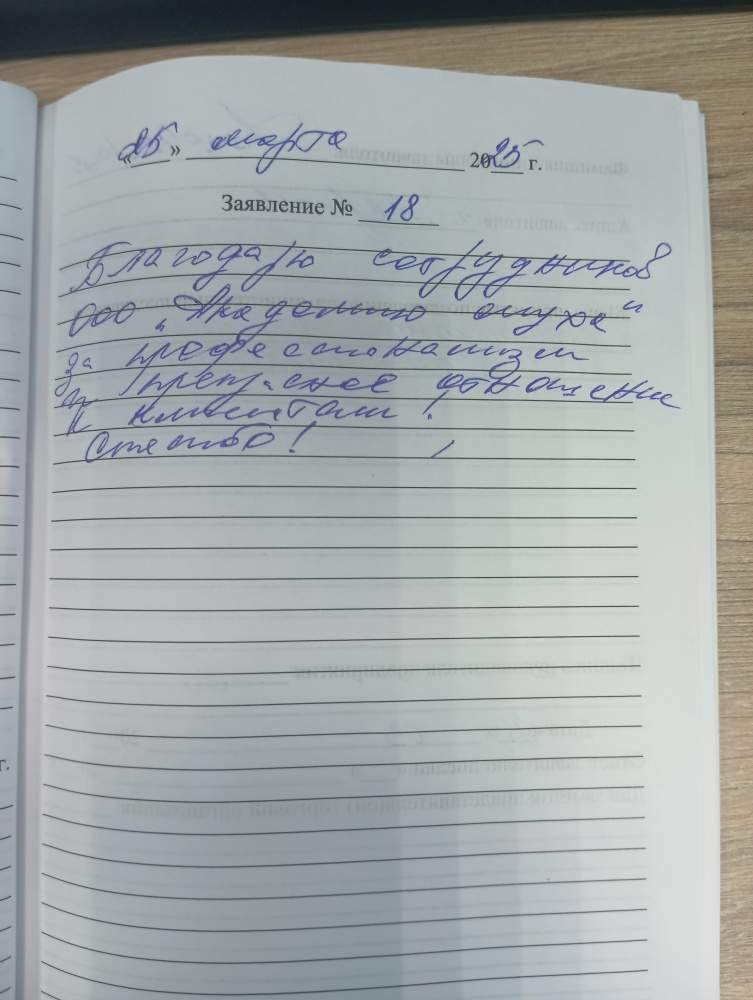 «25» марта 2025 г.
Заявление № 18
Благодарю сотрудников
ООО „Академию слуха"
за профессионализм
и прекрасное отношение
к клиентам!
Спасибо!
г.